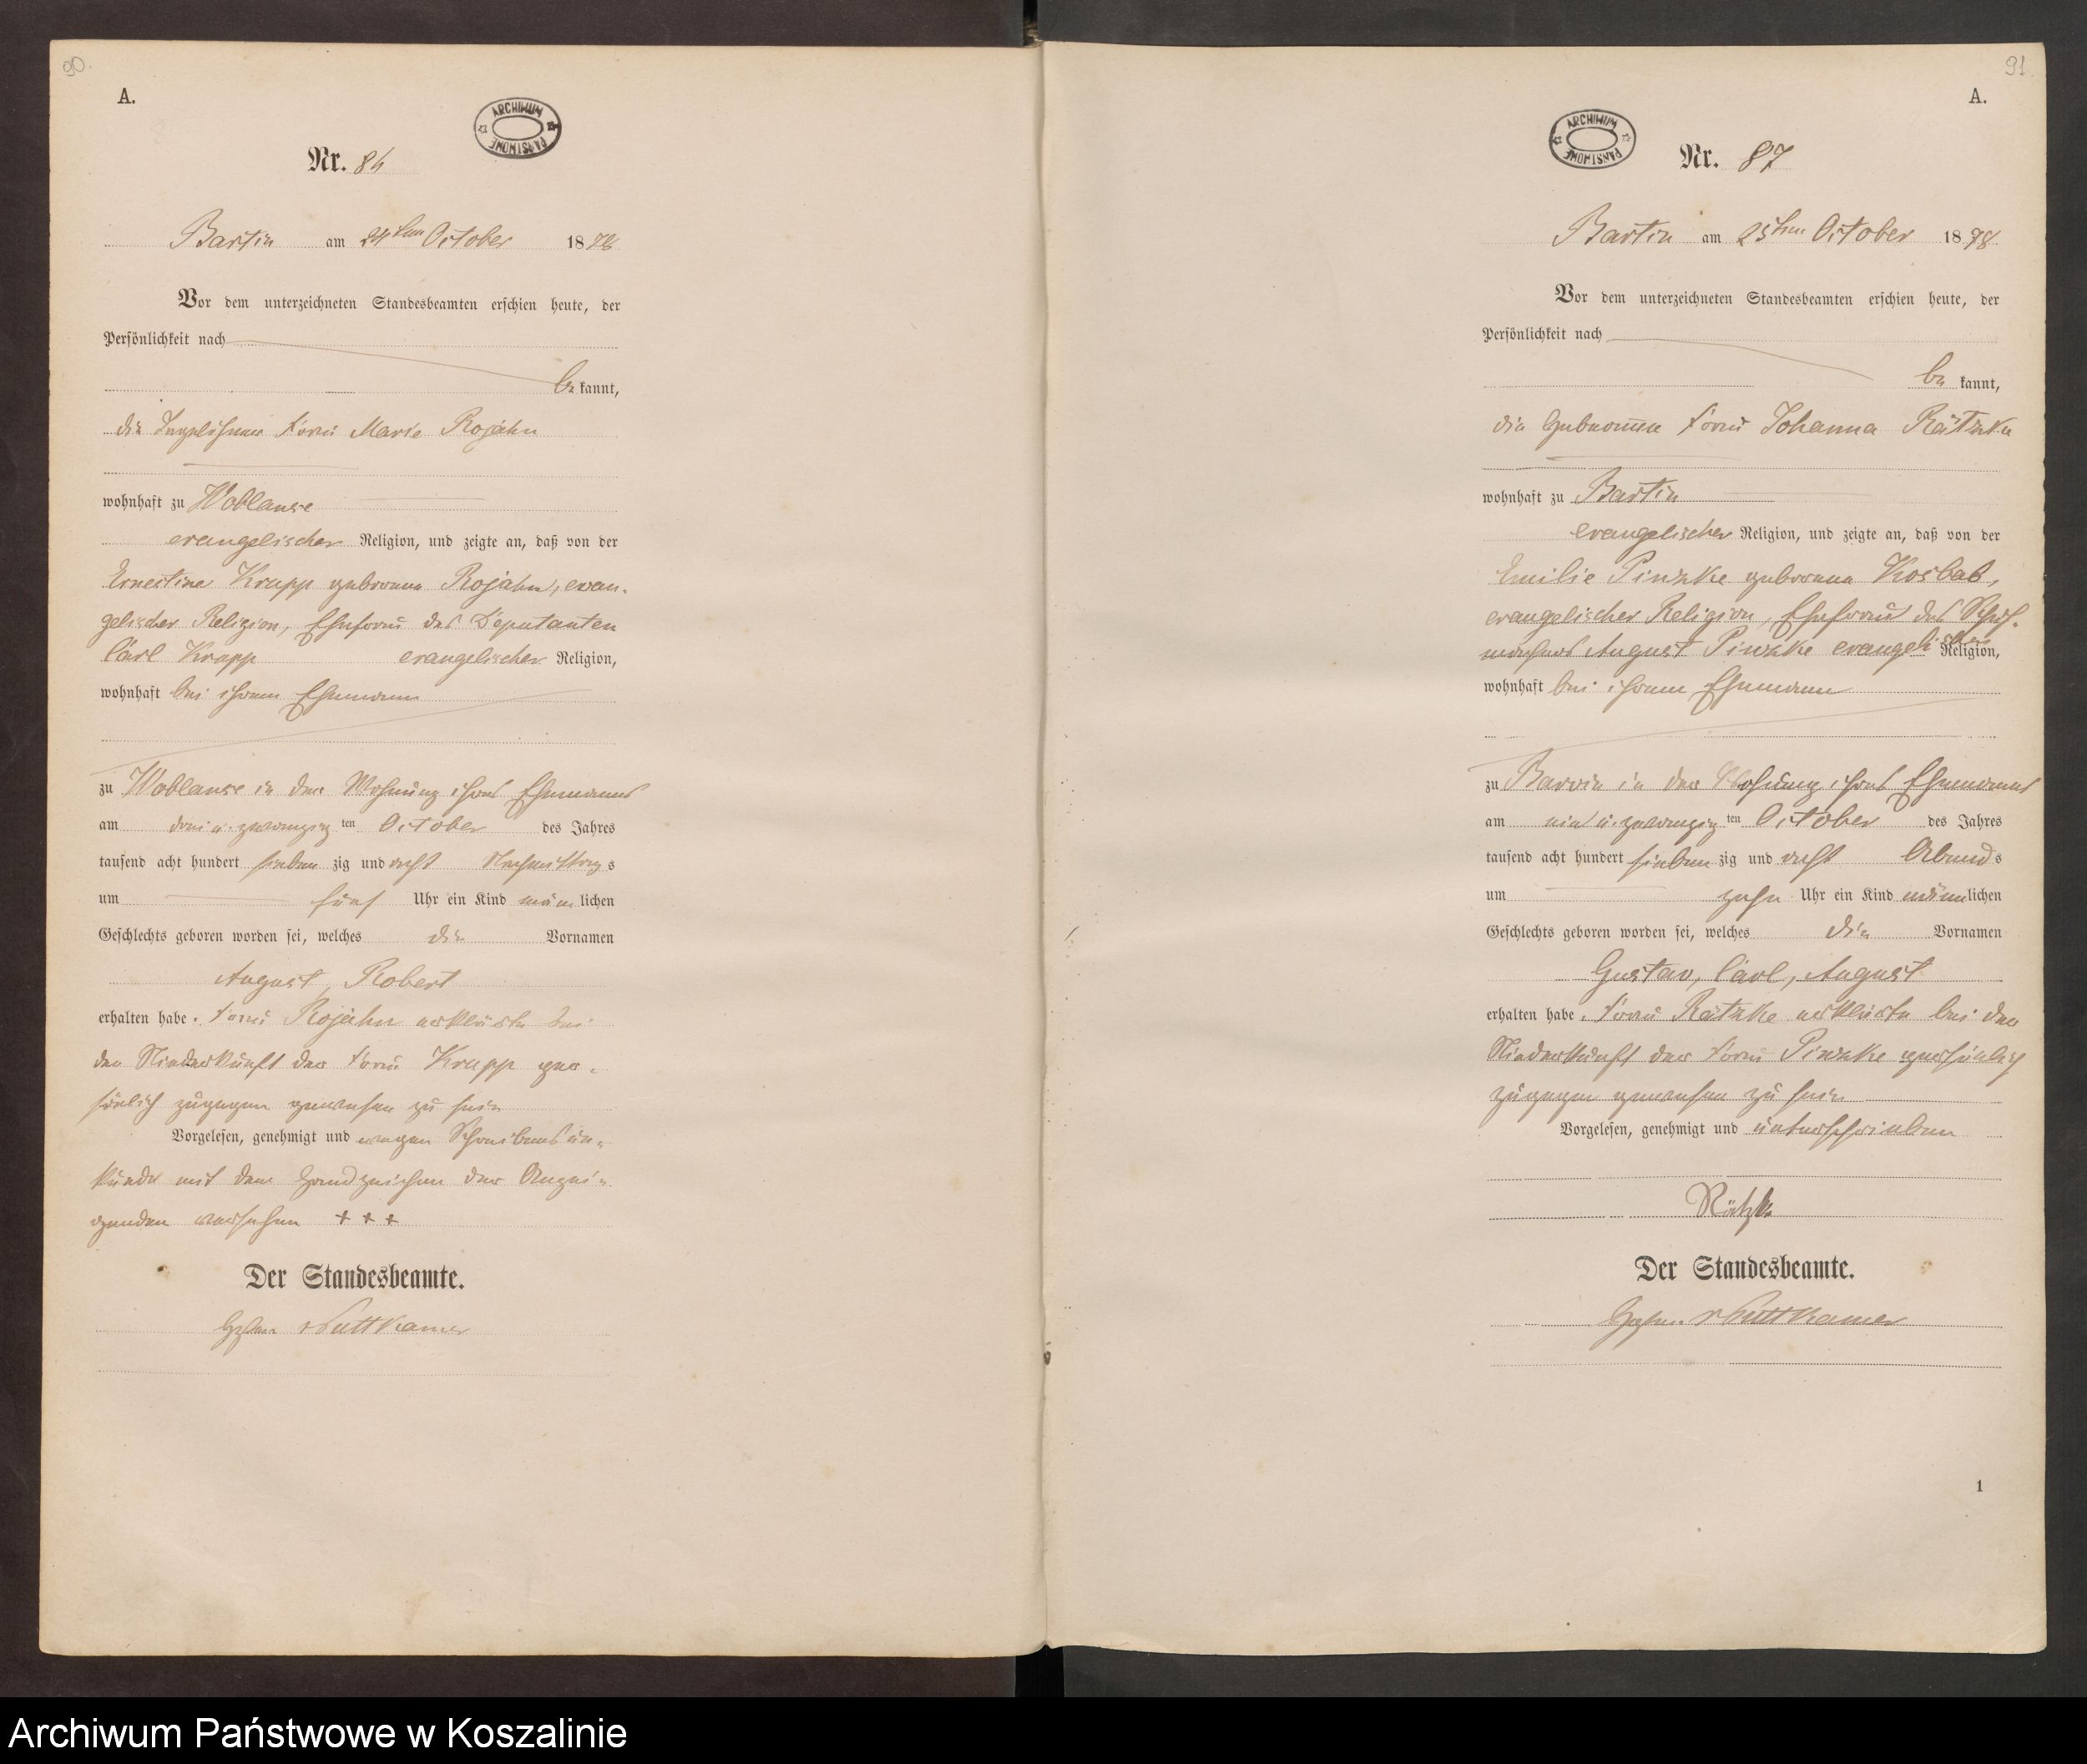 90.
A.
ARCHIWUM PAŃSTWOWE
Nr. 86
Bartin am 24ten October 1878
Vor dem unterzeichneten Standesbeamten erschien heute, der
Persönlichkeit nach
be kannt,
die Tagelöhner Frau Marie Rojahn
wohnhaft zu Woblanse
evangelischer Religion, und zeigte an, daß von der
Ernestine Krapp geborene Rojahn, evan-
gelischer Religion, Ehefrau des Deputanten
Carl Krapp evangelischer Religion,
wohnhaft bei ihrem Ehemann
zu Woblanse in der Wohnung ihres Ehemannes
am drei u. zwanzig ten October des Jahres
tausend acht hundert sieben zig und acht Nachmittag s
um fünf Uhr ein Kind männ lichen
Geschlechts geboren worden sei, welches die Vornamen
August, Robert
erhalten habe. Frau Rojahn erklärte bei
der Niederkunft der Frau Krapp per-
sönlich zugegen gewesen zu sein
Vorgelesen, genehmigt und wegen Schreibens un-
kunde mit dem Handzeichen der Anzei-
genden versehen + + +
Der Standesbeamte.
Puttkamer
91.
A.
ARCHIWUM PAŃSTWOWE
Nr. 87
Bartin am 25ten October 1878
Vor dem unterzeichneten Standesbeamten erschien heute, der
Persönlichkeit nach
be kannt,
die Hebamme Frau Johanna Rätzke
wohnhaft zu Bartin
evangelischer Religion, und zeigte an, daß von der
Emilie Pinzke geborene Kosbab,
evangelischer Religion, Ehefrau des Schuh-
machers August Pinzke evangelischer Religion,
wohnhaft bei ihrem Ehemann
zu Barvin in der Wohnung ihres Ehemannes
am ein u. zwanzig ten October des Jahres
tausend acht hundert sieben zig und acht Abend s
um zehn Uhr ein Kind männ lichen
Geschlechts geboren worden sei, welches die Vornamen
Gustav, Carl, August
erhalten habe. Frau Rätzke erklärte bei der
Niederkunft der Frau Pinzke persönlich
zugegen gewesen zu sein
Vorgelesen, genehmigt und unterschrieben
Rätzke
Der Standesbeamte.
Puttkamer
1
Archiwum Państwowe w Koszalinie